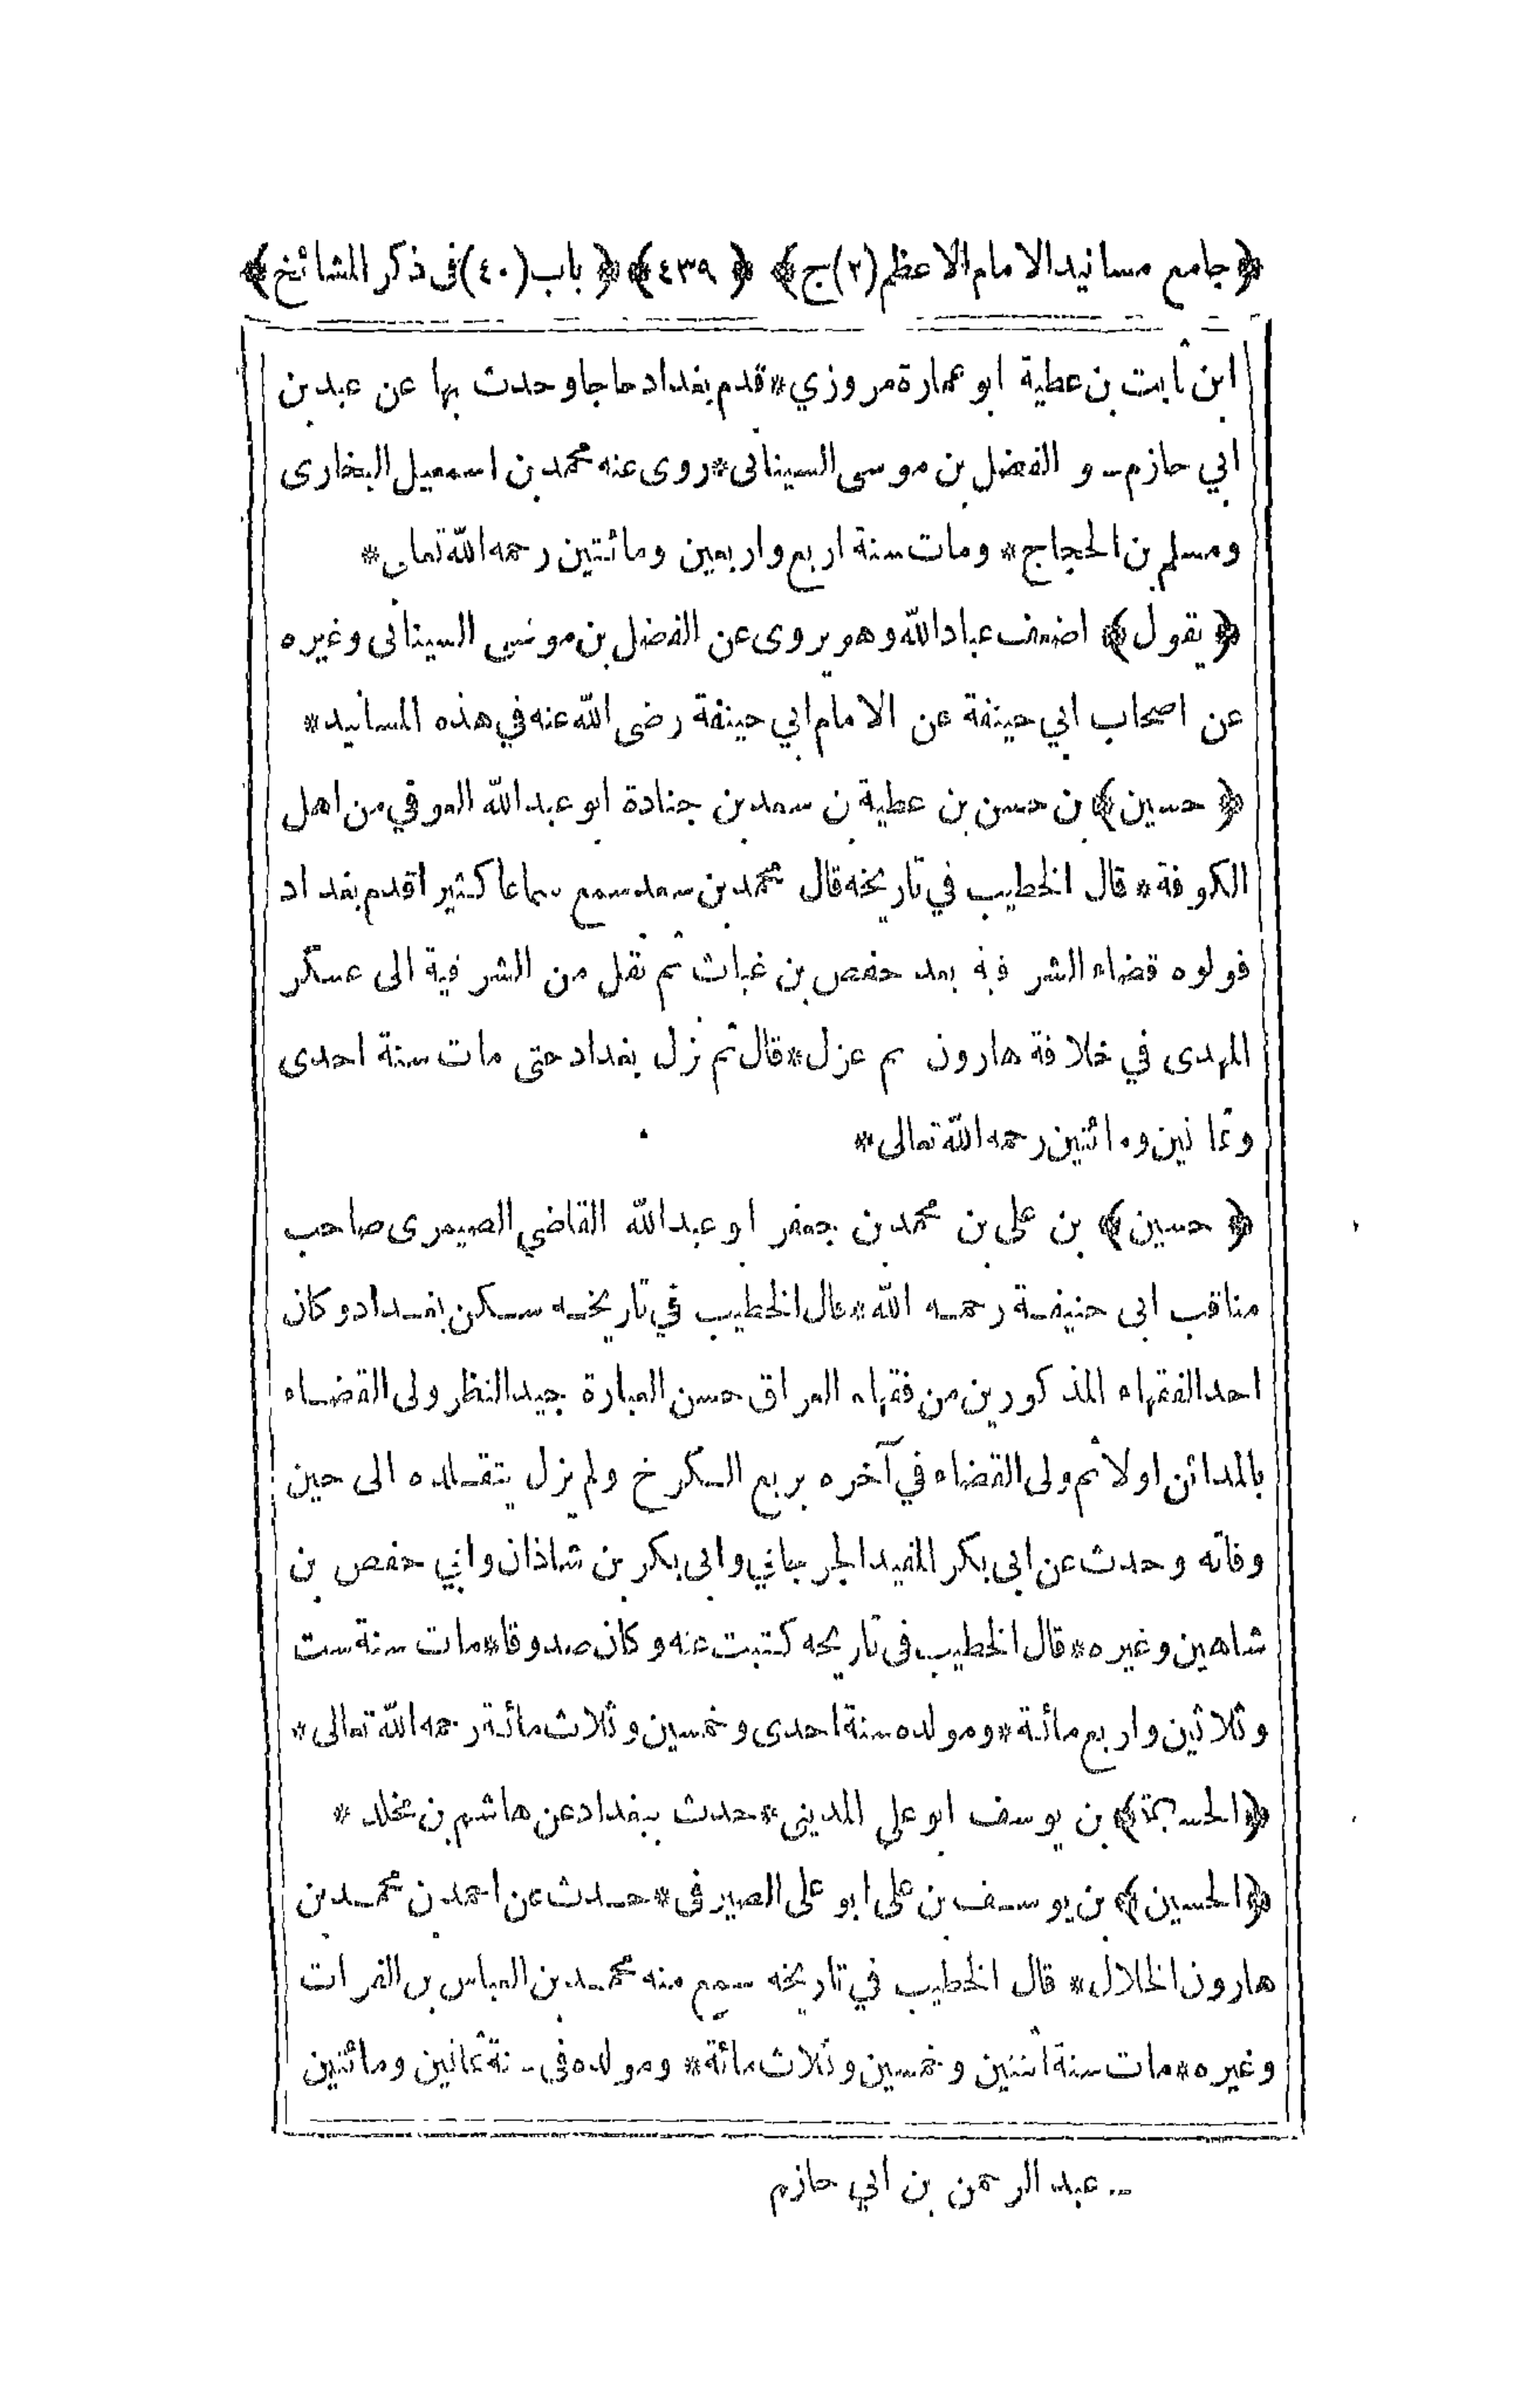 ﴿جامع مسانيد الامام الاعظم (٢) ج﴾ ﴿٤٣٩﴾ ﴿باب (٤٠) فى ذكر المشائخ﴾
ابن ثابت بن عطية ابو عمارة مروزي * قدم بغداد حاجا وحدث بها عن عبد بن
ابي حازم ـ و الفضل بن موسى السينانى * روى عنه محمد بن اسمعيل البخارى
ومسلم بن الحجاج * ومات سنة اربع واربعين ومائتين رحمه الله تعالى *
﴿يقول﴾ اضعف عباد الله وهو يروى عن الفضل بن موسى السينانى وغيره
عن اصحاب ابي حنيفة عن الامام ابي حنيفة رضى الله عنه في هذه المسانيد *
﴿حسين﴾ بن حسن بن عطية بن سعد بن جنادة ابو عبد الله العوفي من اهل
الكوفة * قال الخطيب في تاريخه قال محمد بن سعد سمع سماعا كثيرا قدم بغداد
فولوه قضاء الشرقية بعد حفص بن غياث ثم نقل من الشرقية الى عسكر
المهدى في خلافة هارون ثم عزل * قال ثم نزل بغداد حتى مات سنة احدى
وثمانين ومائتين رحمه الله تعالى *
﴿حسين﴾ بن على بن محمد بن جعفر ابو عبد الله القاضي الصيمرى صاحب
مناقب ابى حنيفة رحمه الله * قال الخطيب في تاريخه سكن بغداد وكان
احد الفقهاء المذكورين من فقهاء العراق حسن العبارة جيد النظر ولى القضاء
بالمدائن اولا ثم ولى القضاء في آخره بربع الكرخ ولم يزل يتقلده الى حين
وفاته وحدث عن ابى بكر المفيد الجرجاني وابى بكر بن شاذان وابي حفص بن
شاهين وغيره * قال الخطيب فى تاريخه كتبت عنه وكان صدوقا * مات سنة ست
وثلاثين واربع مائة * ومولده سنة احدى وخمسين وثلاث مائة رحمه الله تعالى *
بن يوسف ابو علي المديني * حدث ببغداد عن هاشم بن مخلد *
﴿الحسين﴾ بن يوسف بن على ابو على الصيرفى * حدث عن احمد بن محمد بن
هارون الخلال * قال الخطيب في تاريخه سمع منه محمد بن العباس بن الفرات
وغيره * مات سنة اثنتين وخمسين وثلاث مائة * ومولده في سنة ثمانين ومائتين
ـ عبد الرحمن بن ابي حازم